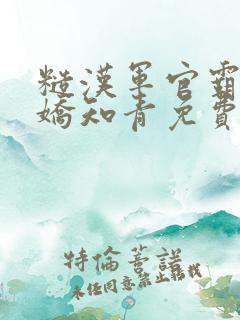 糙漢軍官霸
嬌知青免費
特倫蒈諾
未经同意禁止转载